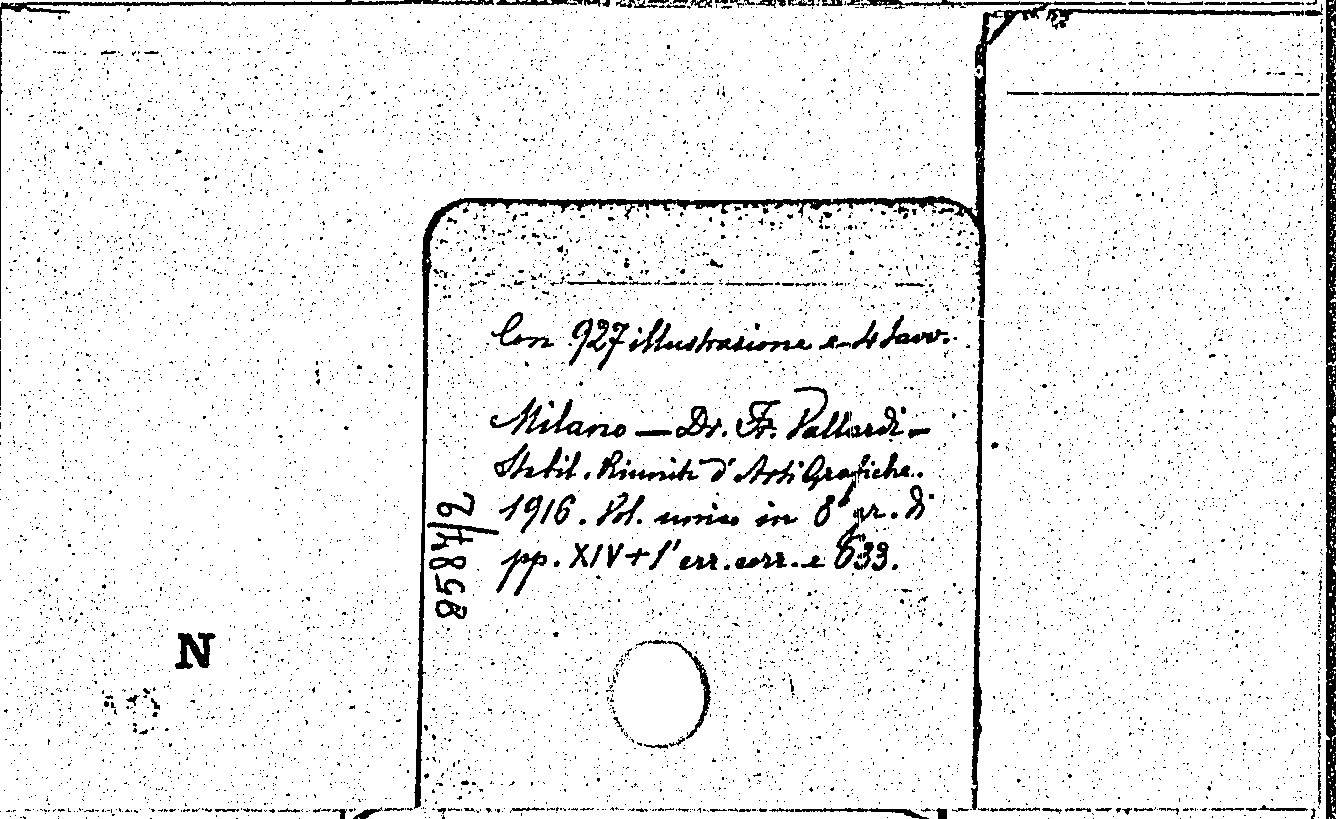 Con 927 illustrazione e 4 tavv.
Milano — Dr. Fr. Vallardi —
Stabil. Riuniti d'Arti Grafiche.
1916. Vol. unico in 8° gr. di
pp. XIV + l'err. corr. e 633.
8584/2
N